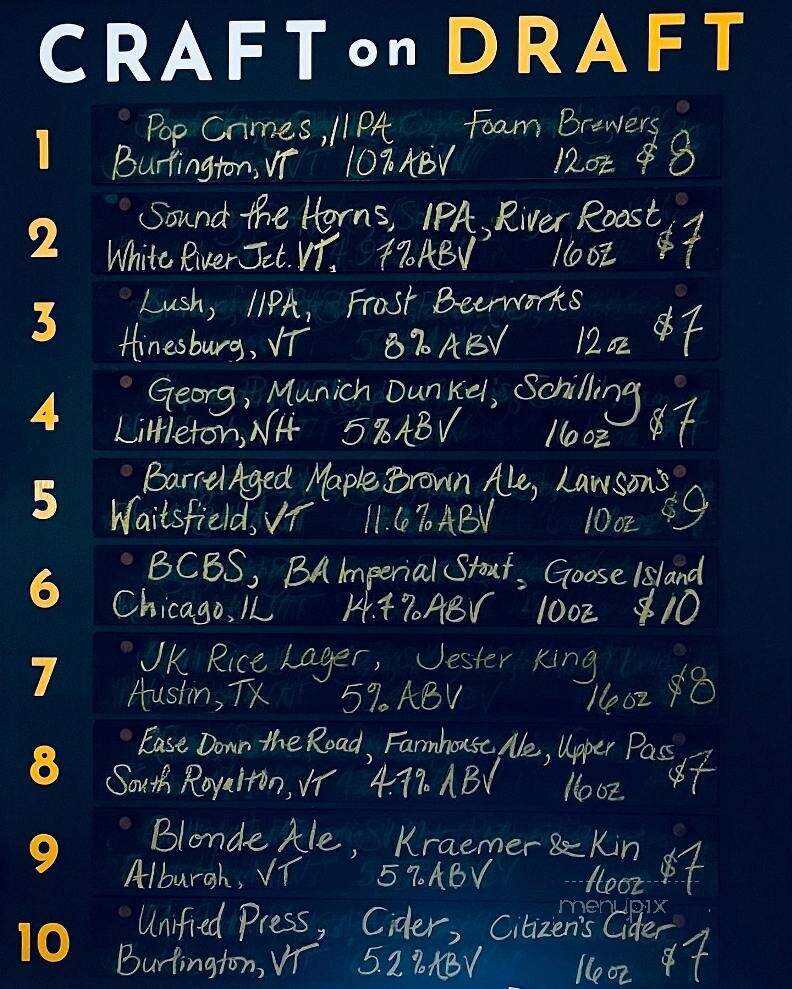 CRAFT on DRAFT
1
Pop Crimes, IIPA Foam Brewers
Burlington, VT 10% ABV 12oz $8
2
Sound the Horns, IPA, River Roost
White River Jct. VT, 7% ABV 16oz $7
3
Lush, IIPA, Frost Beerworks
Hinesburg, VT 8% ABV 12oz $7
4
Georg, Munich Dunkel, Schilling
Littleton, NH 5% ABV 16oz $7
5
Barrel Aged Maple Brown Ale, Lawson's
Waitsfield, VT 11.6% ABV 10oz $9
6
BCBS, BA Imperial Stout, Goose Island
Chicago, IL 14.7% ABV 10oz $10
7
JK Rice Lager, Jester King
Austin, TX 5% ABV 16oz $8
8
Ease Down the Road, Farmhouse Ale, Upper Pass
South Royalton, VT 4.7% ABV 16oz $7
9
Blonde Ale, Kraemer & Kin
Alburgh, VT 5% ABV 16oz $7
menupix
10
Unified Press, Cider, Citizen's Cider
Burlington, VT 5.2% ABV 16oz $7